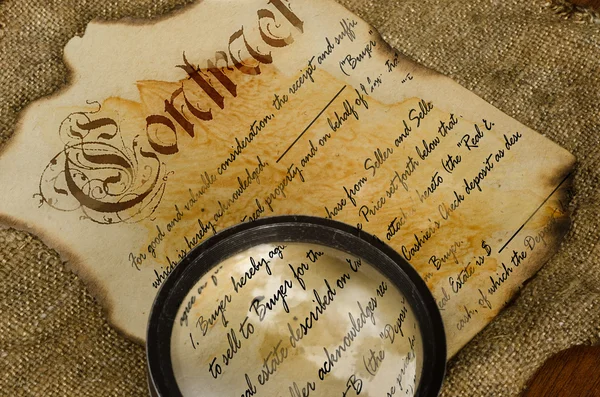 Contract
For good and valuable consideration, the receipt and suffic
which is hereby acknowledged, ("Buyer"
real property and on behalf of
hase from Seller and Selle
e Price set forth below that
hereto (the "Real E
Cashier's Check deposit as desc
Buyer,
eal Estate is $
cash, of which the Depo
agree as
1. Buyer hereby ag
to sell to Buyer for th
eal estate described on
ller acknowledges rec
B (the "Depos